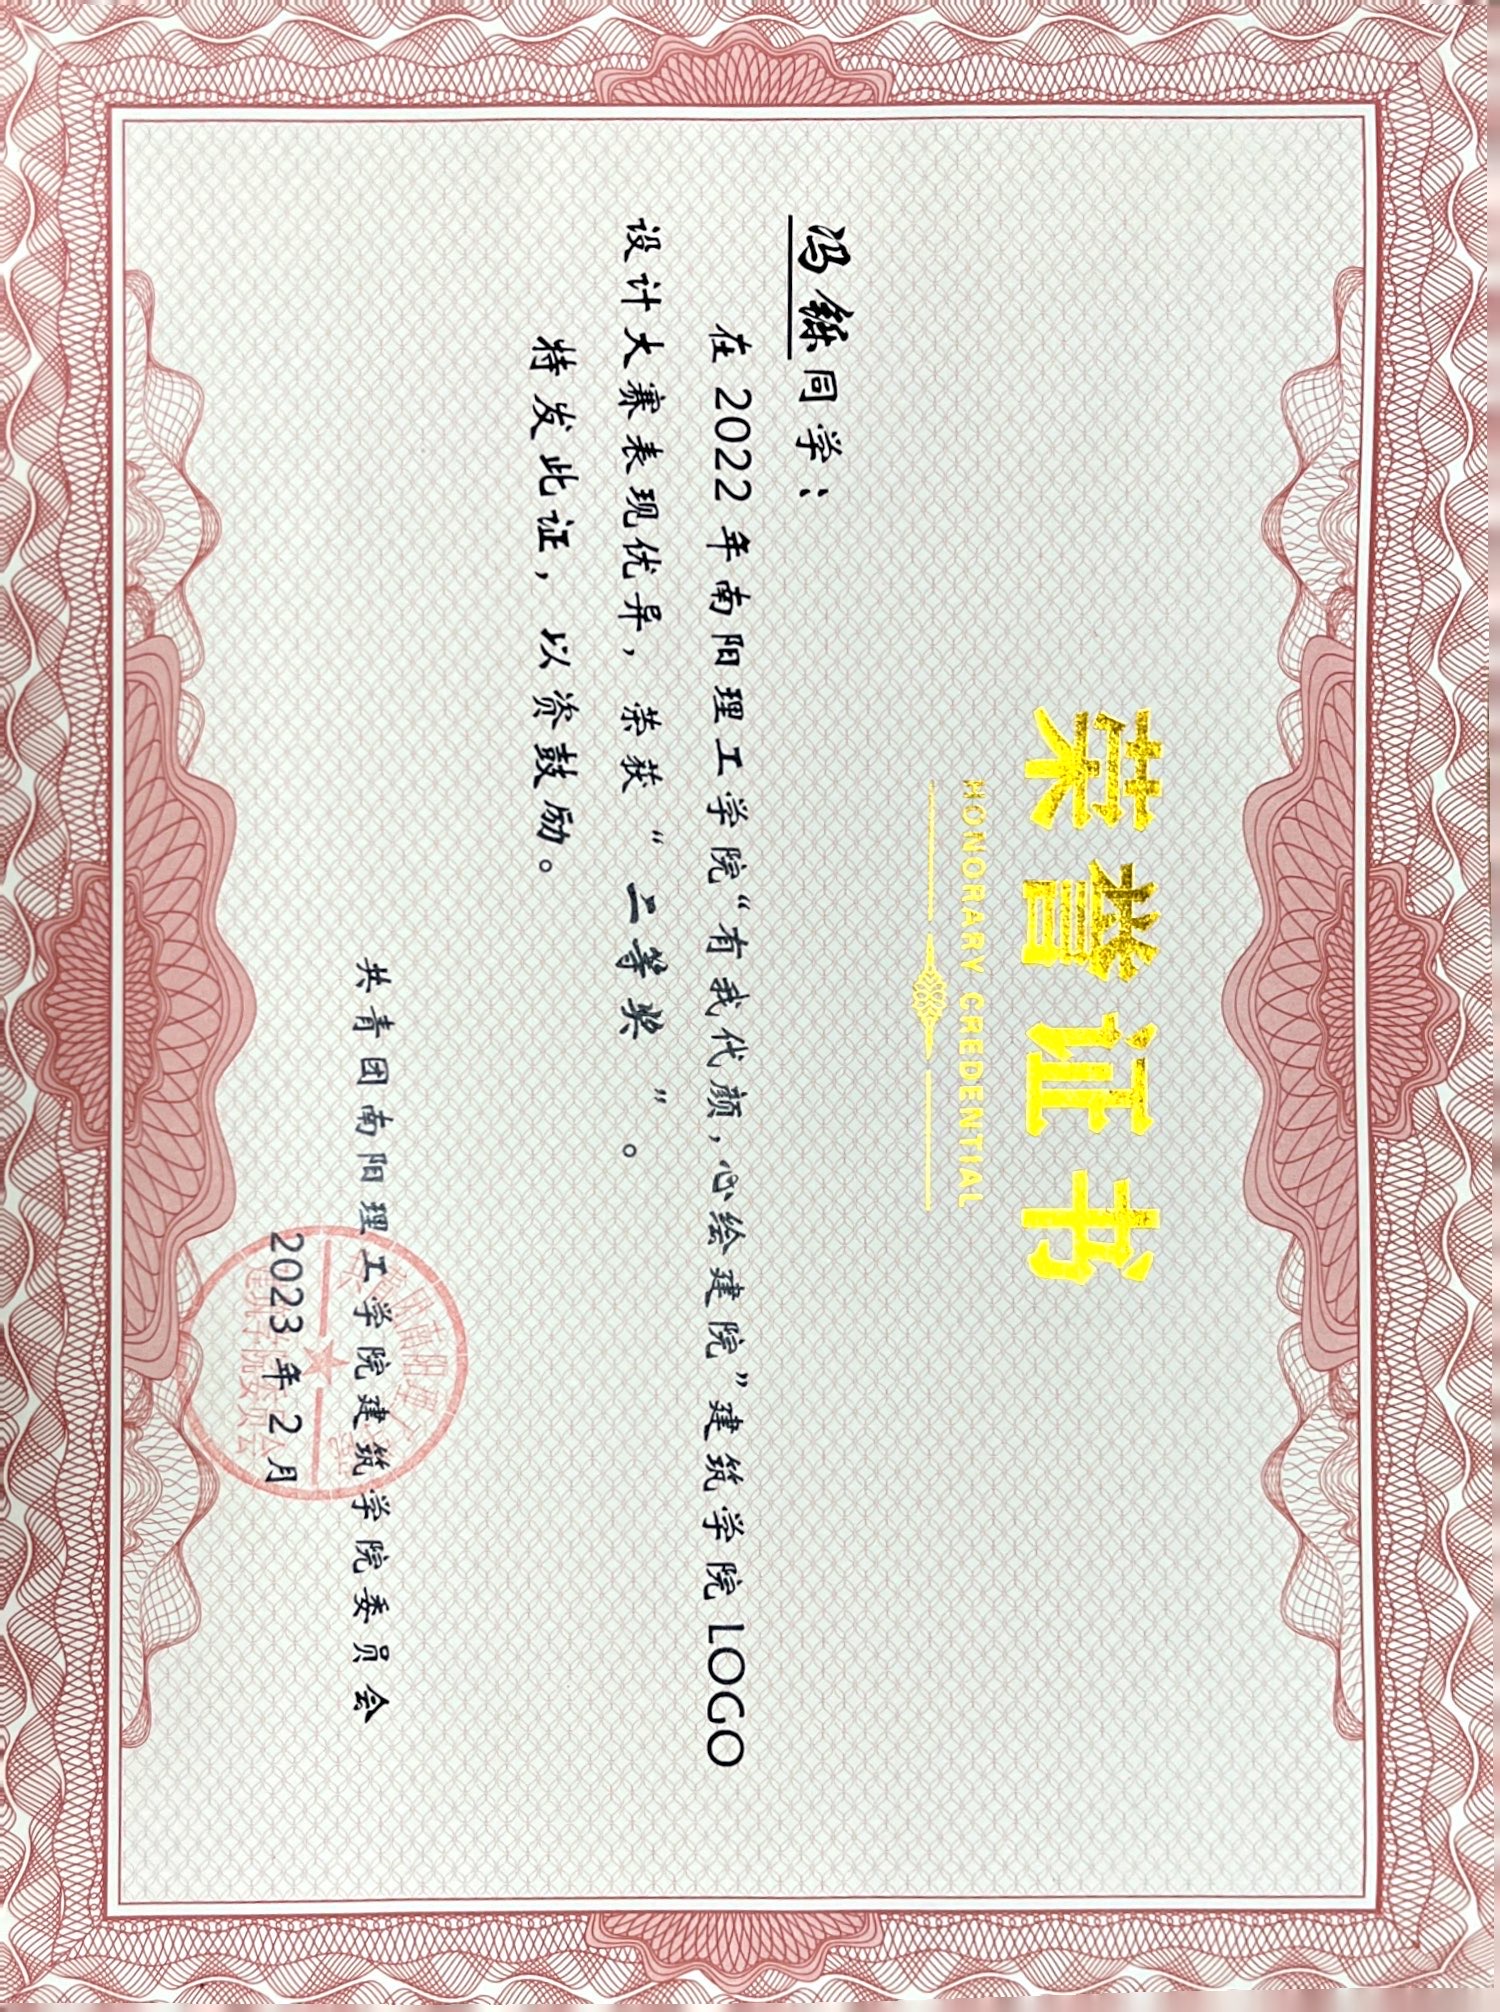 荣誉证书
HONORARY CREDENTIAL
冯铄同学：
在2022年南阳理工学院“有我代颜，心绘建院”建筑学院LOGO
设计大赛表现优异，荣获“二等奖”。
特发此证，以资鼓励。
共青团南阳理工学院建筑学院委员会
2023年2月